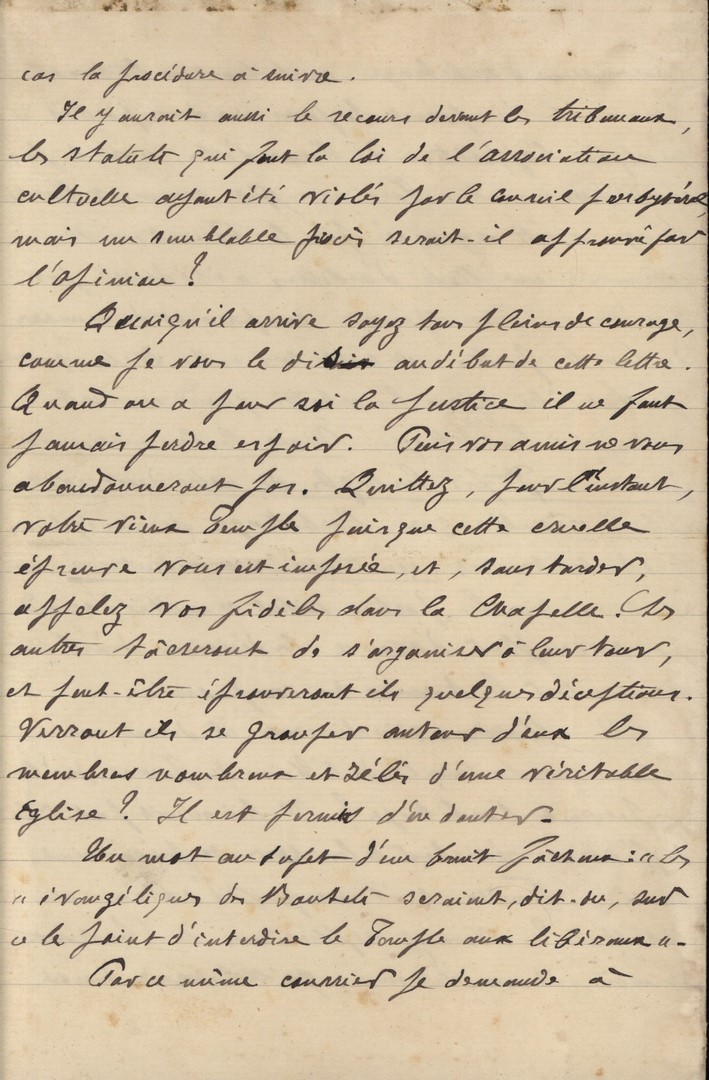 cas la procédure à suivre.
Il y aurait aussi le recours devant les tribunaux,
les statuts qui font la loi de l'association
cultuelle ayant été violés par le Conseil presbytéral,
mais un semblable procès serait-il approuvé par
l'opinion ?
Quoiqu'il arrive soyez tous pleins de courage,
comme je vous le dis au début de cette lettre.
Quand on a pour soi la justice il ne faut
jamais perdre espoir. Puis vos amis ne vous
abandonneront pas. Quittez, pour l'instant,
votre vieux Temple puisque cette cruelle
épreuve vous est imposée, et, sans tarder,
appelez vos fidèles dans la Chapelle. Les
autres tâcheront de s'organiser à leur tour,
et peut-être éprouveront ils quelques déceptions.
Verront ils se grouper autour d'eux les
membres nombreux et zélés d'une véritable
Eglise ? Il est permis d'en douter.
Un mot au sujet d'un bruit fâcheux : "les
" évangéliques des seraient, dit-on, sur
" le point d'interdire le Temple aux libéraux".
Par ce même courrier je demande à